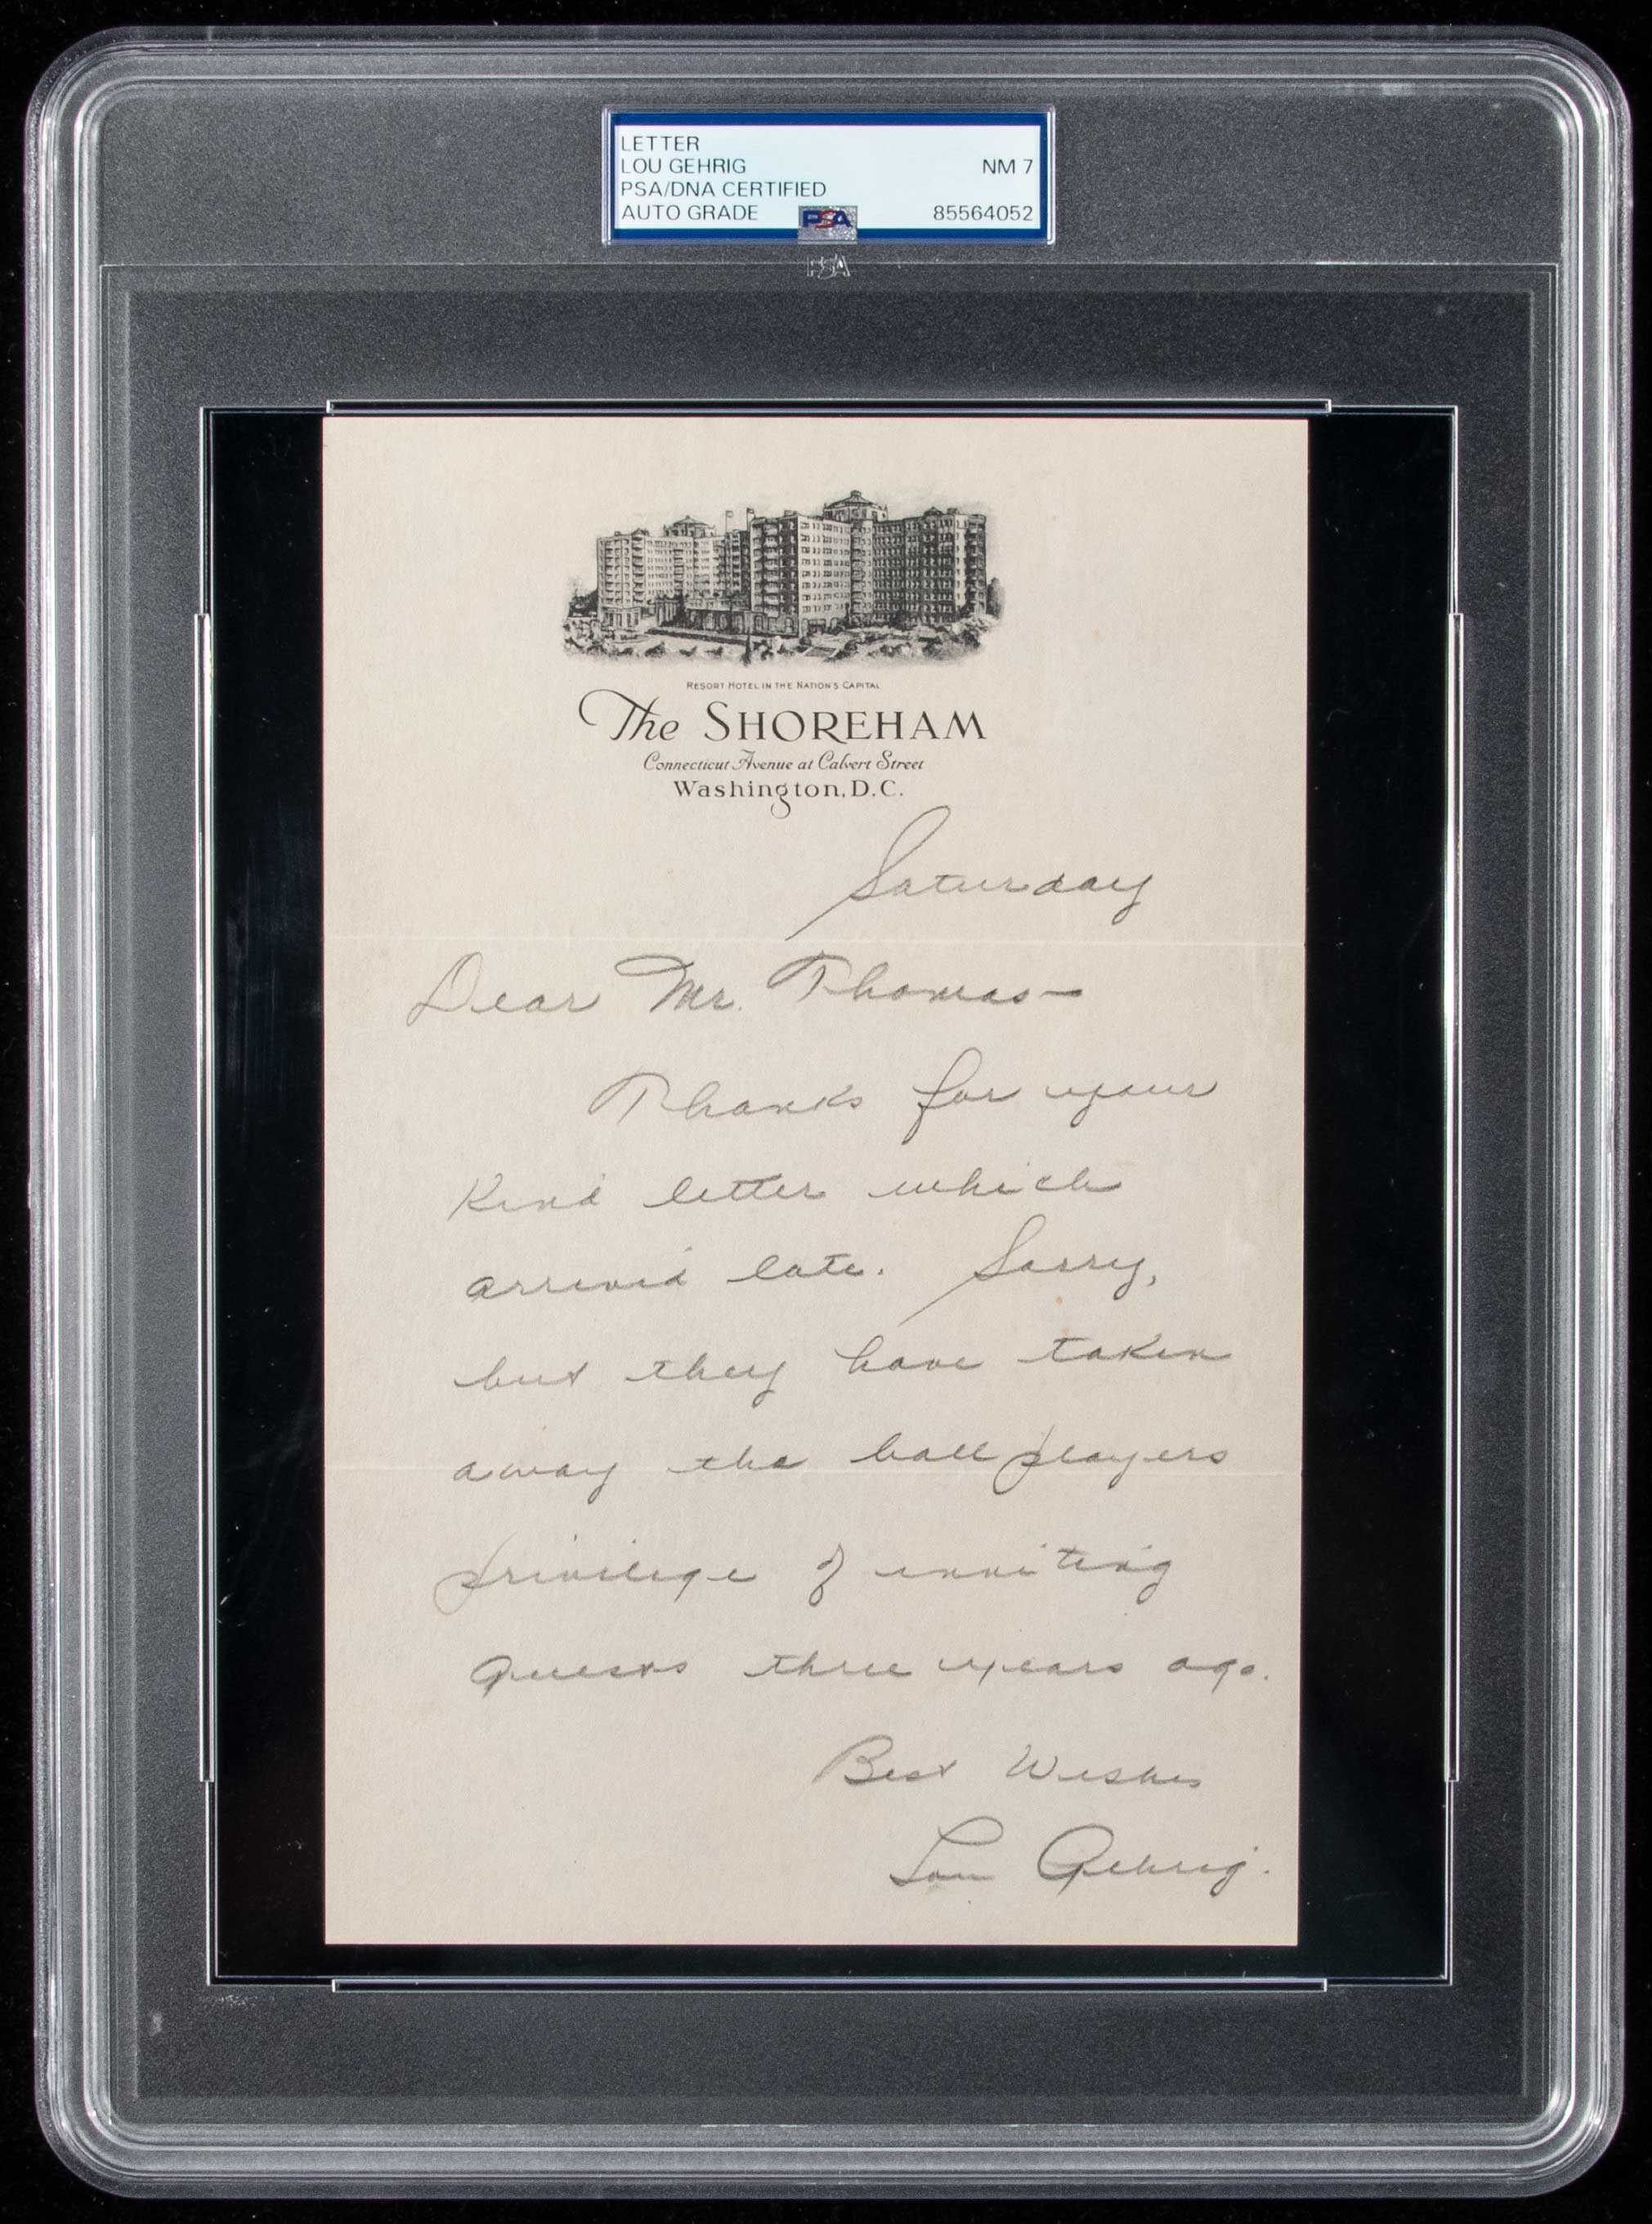 LETTER
LOU GEHRIG NM 7
PSA/DNA CERTIFIED
AUTO GRADE PSA 85564052
PSA
RESORT HOTEL IN THE NATION'S CAPITAL
The SHOREHAM
Connecticut Avenue at Calvert Street
Washington, D.C.
Saturday
Dear Mr. Thomas—
Thanks for your
kind letter which
arrived late. Sorry,
but they have taken
away the ball players
privilege of inviting
guests three years ago.
Best Wishes
Lou Gehrig.